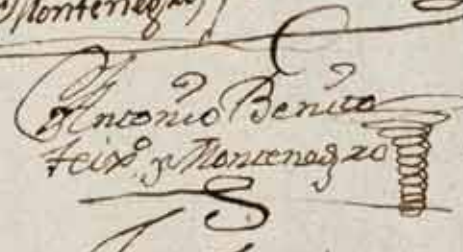 Montenegro
Antonio Benito
Feixº y Montenegro